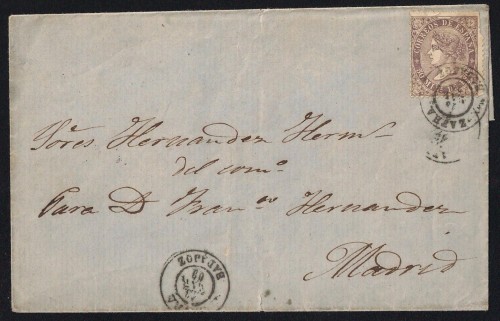 CORREOS DE ESPAÑA
ZAFRA
Sōres Hernandez Hermˢ
del comº
Para D. Franᶜᵒ Hernandez
Madrid
BADAJOZ